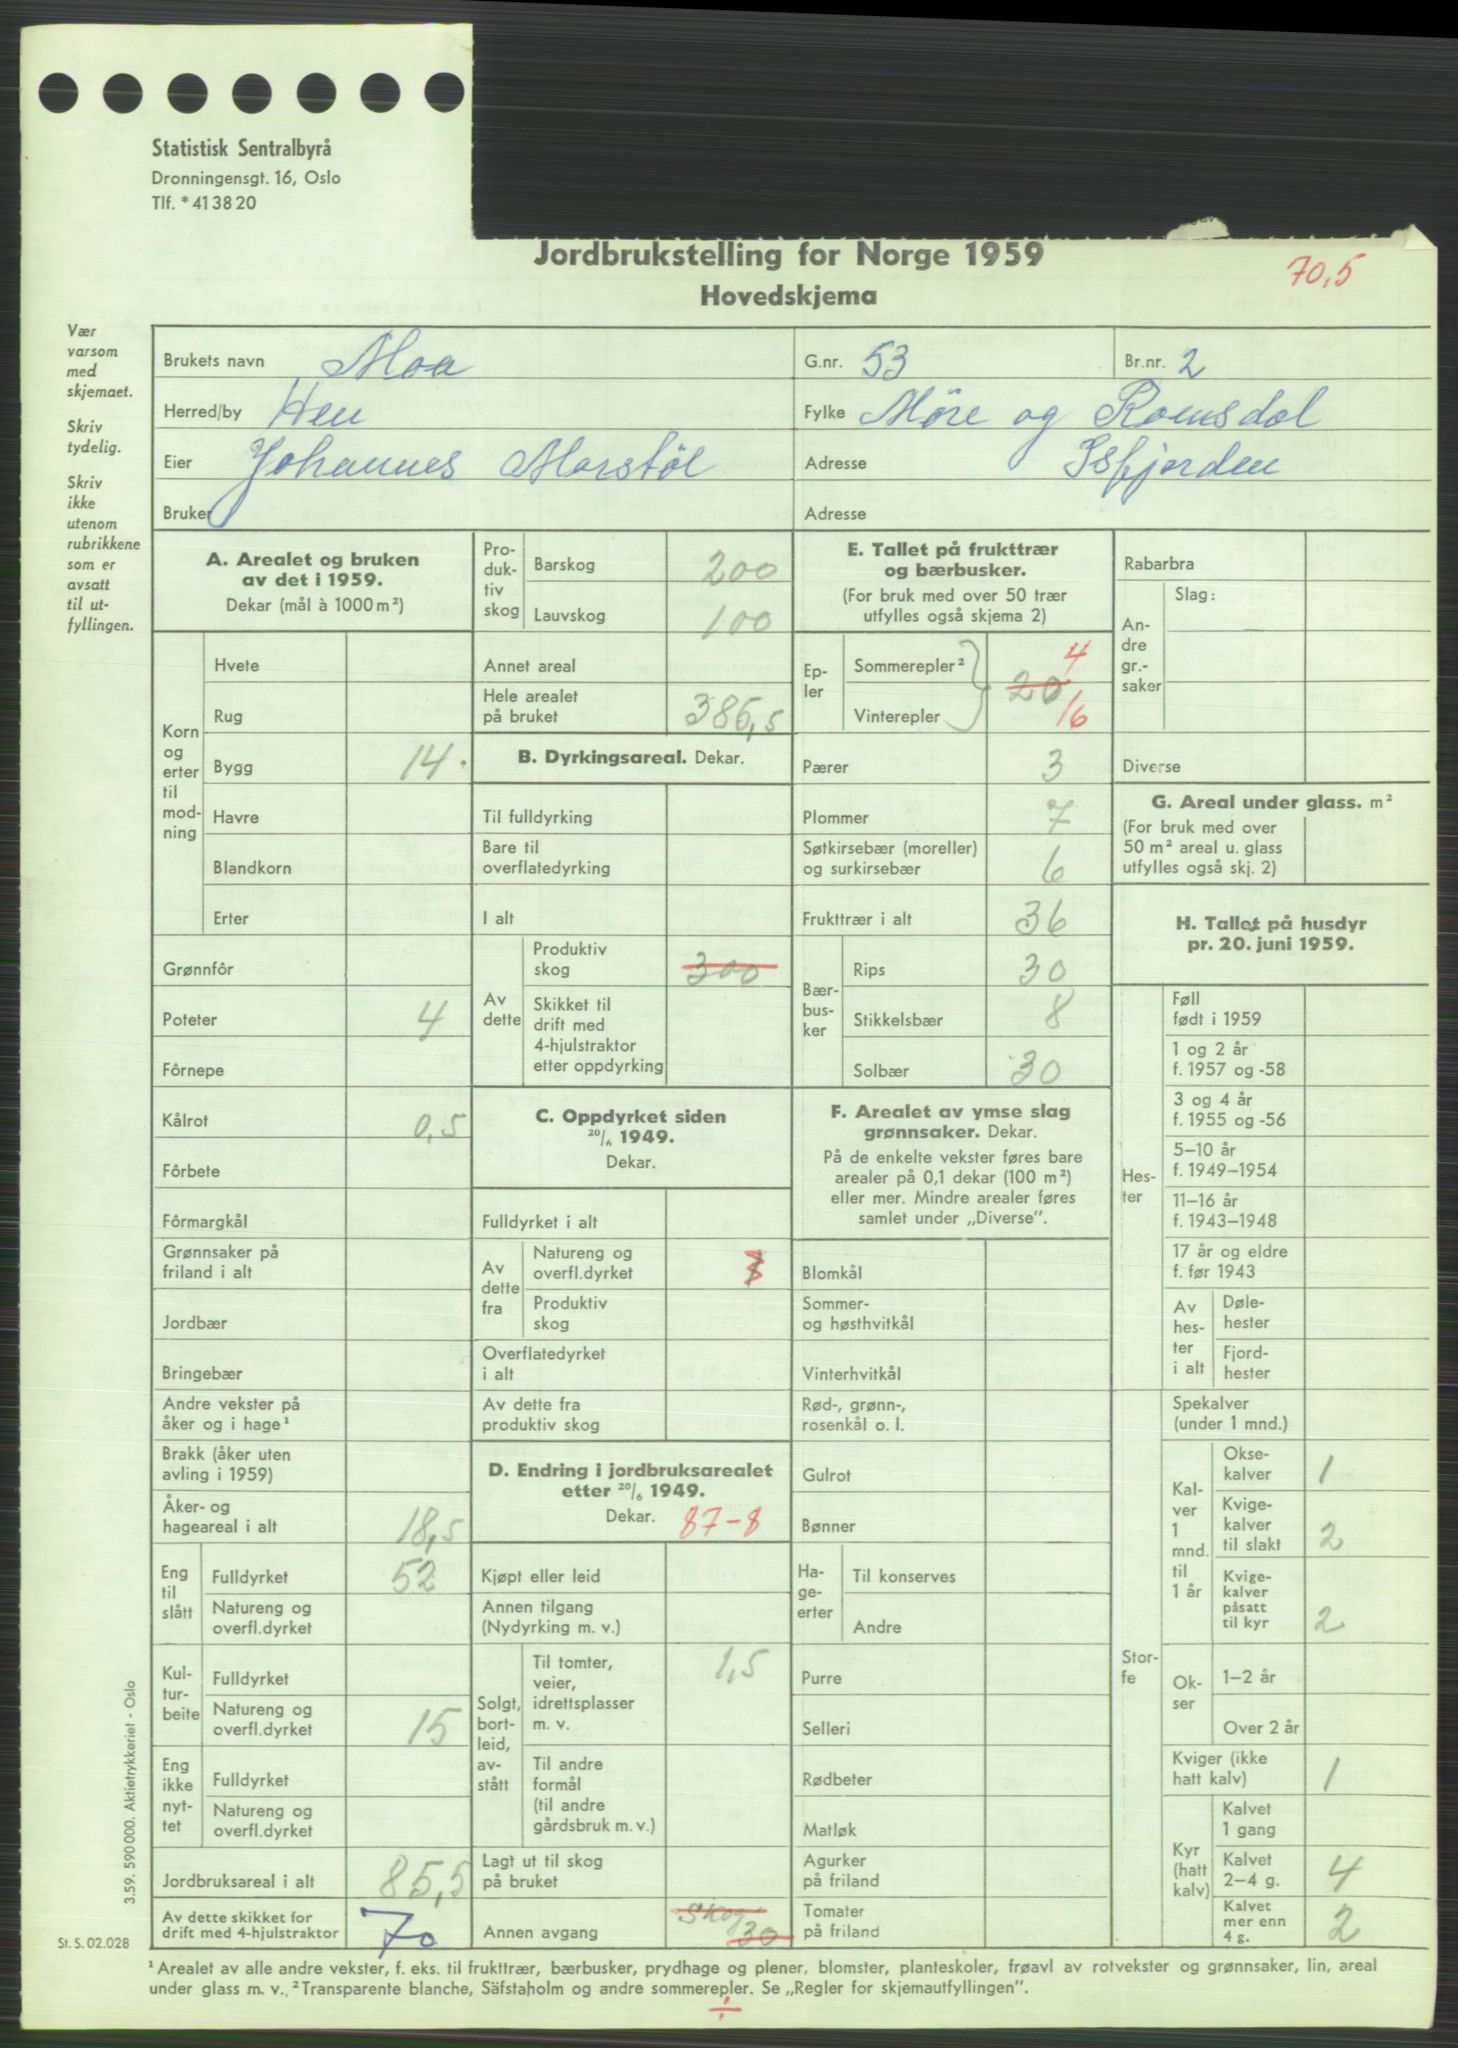 Statistisk Sentralbyrå
Dronningensgt. 16, Oslo
Tlf. * 41 38 20
Jordbrukstelling for Norge 1959
Hovedskjema
70,5
Vær
varsom
med
skjemaet.
Skriv
tydelig.
Skriv
ikke
utenom
rubrikkene
som er
avsatt
til ut-
fyllingen.
Brukets navn Moa G.nr. 53 Br.nr. 2
Herred/by Hen Fylke Möre og Romsdal
Eier Johannes Morstöl Adresse Isfjorden
Bruker Adresse
A. Arealet og bruken
av det i 1959.
Dekar (mål à 1000 m²)
Korn
og
erter
til
mod-
ning
Hvete
Rug
Bygg 14
Havre
Blandkorn
Erter
Grønnfôr
Poteter 4
Fôrnepe
Kålrot 0,5
Fôrbete
Fôrmargkål
Grønnsaker på
friland i alt
Jordbær
Bringebær
Andre vekster på
åker og i hage¹
Brakk (åker uten
avling i 1959)
Åker- og
hageareal i alt 18,5
Eng
til
slått
Fulldyrket 52
Natureng og
overfl.dyrket
Kul-
tur-
beite
Fulldyrket
Natureng og
overfl.dyrket 15
Eng
ikke
nyt-
tet
Fulldyrket
Natureng og
overfl.dyrket
Jordbruksareal i alt 85,5
Av dette skikket for
drift med 4-hjulstraktor 70
Pro-
duk-
tiv
skog
Barskog 200
Lauvskog 100
Annet areal
Hele arealet
på bruket 385,5
B. Dyrkingsareal. Dekar.
Til fulldyrking
Bare til
overflatedyrking
I alt
Av
dette
Produktiv
skog 300
Skikket til
drift med
4-hjulstraktor
etter oppdyrking
C. Oppdyrket siden
20/6 1949.
Dekar.
Fulldyrket i alt
Av
dette
fra
Natureng og
overfl.dyrket
Produktiv
skog
Overflatedyrket
i alt
Av dette fra
produktiv skog
D. Endring i jordbruksarealet
etter 20/6 1949.
Dekar. 87-8
Kjøpt eller leid
Annen tilgang
(Nydyrking m. v.)
Solgt,
bort-
leid,
av-
stått
Til tomter,
veier,
idrettsplasser
m. v. 1,5
Til andre
formål
(til andre
gårdsbruk m. v.)
Lagt ut til skog
på bruket
Annen avgang Skog 30
E. Tallet på frukttrær
og bærbusker.
(For bruk med over 50 trær
utfylles også skjema 2)
Ep-
ler
Sommerepler² 4
20
Vinterepler 16
Pærer 3
Plommer 7
Søtkirsebær (moreller)
og surkirsebær 6
Frukttrær i alt 36
Bær-
bus-
ker
Rips 30
Stikkelsbær 8
Solbær 30
F. Arealet av ymse slag
grønnsaker. Dekar.
På de enkelte vekster føres bare
arealer på 0,1 dekar (100 m²)
eller mer. Mindre arealer føres
samlet under „Diverse".
Blomkål
Sommer-
og høsthvitkål
Vinterhvitkål
Rød-, grønn-,
rosenkål o. l.
Gulrot
Bønner
Ha-
ge-
erter
Til konserves
Andre
Purre
Selleri
Rødbeter
Matløk
Agurker
på friland
Tomater
på friland
Rabarbra
An-
dre
gr.-
saker
Slag:
Diverse
G. Areal under glass. m²
(For bruk med over
50 m² areal u. glass
utfylles også skj. 2)
H. Tallet på husdyr
pr. 20. juni 1959.
Hes-
ter
Føll
født i 1959
1 og 2 år
f. 1957 og -58
3 og 4 år
f. 1955 og -56
5–10 år
f. 1949–1954
11–16 år
f. 1943–1948
17 år og eldre
f. før 1943
Av
hes-
ter
i alt
Døle-
hester
Fjord-
hester
Stor-
fe
Spekalver
(under 1 mnd.)
Kal-
ver
1
mnd.
til
1 år
Okse-
kalver 1
Kvige-
kalver
til slakt 2
Kvige-
kalver
påsatt
til kyr 2
Ok-
ser
1–2 år
Over 2 år
Kviger (ikke
hatt kalv) 1
Kyr
(hatt
kalv)
Kalvet
1 gang
Kalvet
2–4 g. 4
Kalvet
mer enn
4 g. 2
3.59. 590 000. Aktietrykkeriet - Oslo
St. S. 02.028
¹ Arealet av alle andre vekster, f. eks. til frukttrær, bærbusker, prydhage og plener, blomster, planteskoler, frøavl av rotvekster og grønnsaker, lin, areal
under glass m. v. ² Transparente blanche, Säfstaholm og andre sommerepler. Se „Regler for skjemautfyllingen".
÷